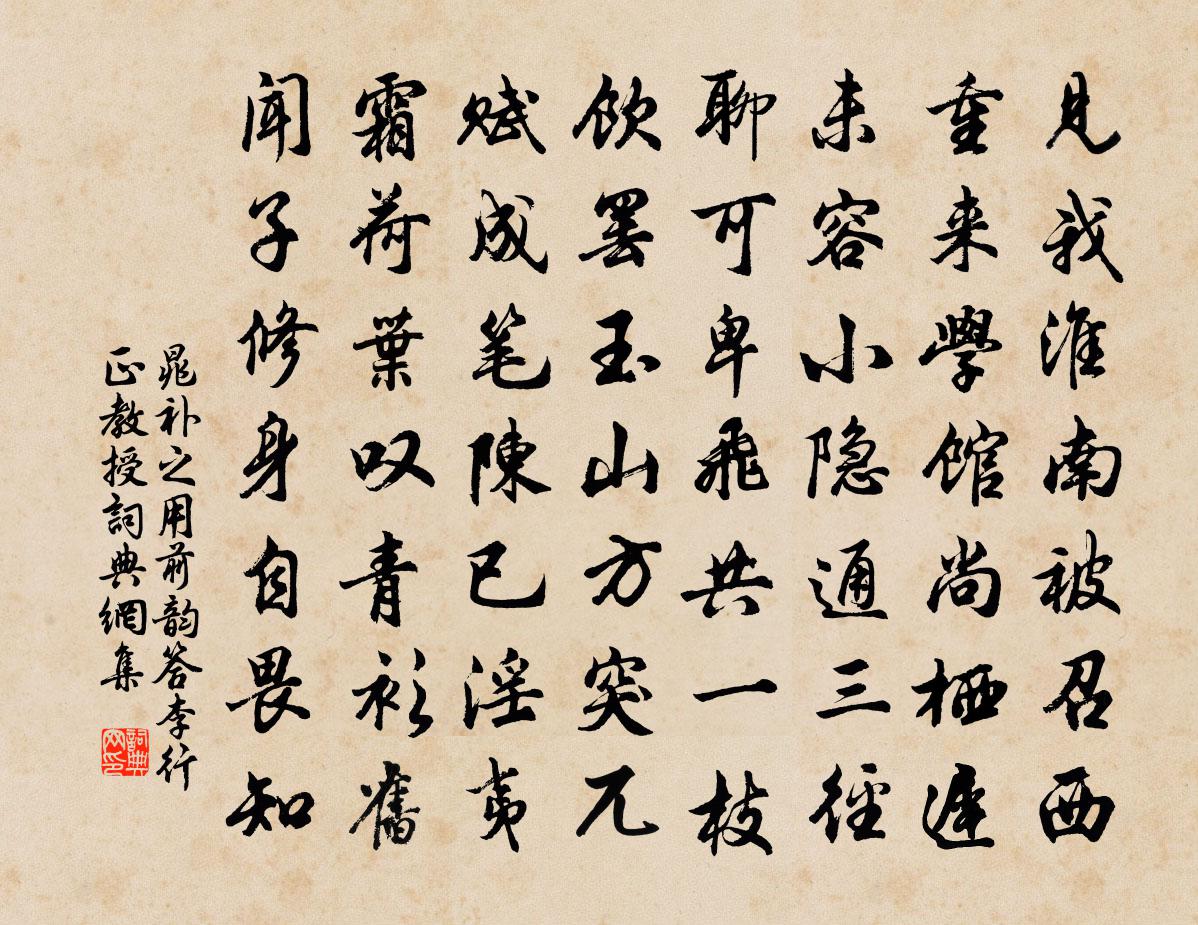 見我淮南被召西
重来學館尚栖遲
未容小隐通三徑
聊可卑飛共一枝
飲罢玉山方突兀
赋成笔陳已淫夷
霜荷葉叹青衫舊
闻子修身自畏知
晁补之用前韵答李行
正教授詞典網集
詞典
网印